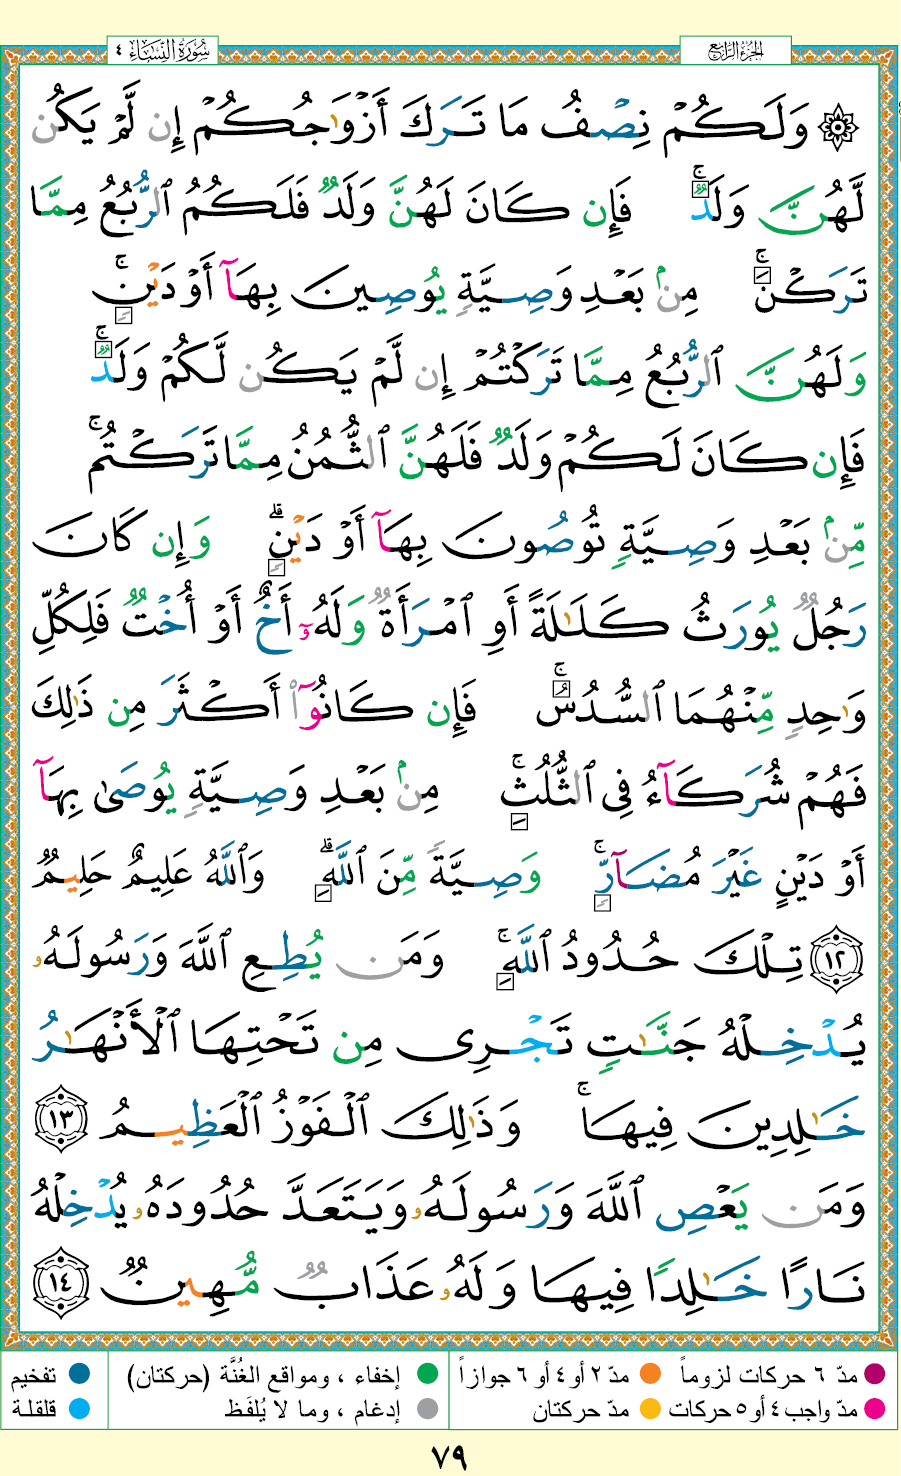 الجزء الرابع
سورة النساء ٤
۞ وَلَكُمْ نِصْفُ مَا تَرَكَ أَزْوَٰجُكُمْ إِن لَّمْ يَكُن
لَّهُنَّ وَلَدٌ ۚ فَإِن كَانَ لَهُنَّ وَلَدٌ فَلَكُمُ ٱلرُّبُعُ مِمَّا
تَرَكْنَ ۚ مِنۢ بَعْدِ وَصِيَّةٍ يُوصِينَ بِهَآ أَوْ دَيْنٍ ۚ
وَلَهُنَّ ٱلرُّبُعُ مِمَّا تَرَكْتُمْ إِن لَّمْ يَكُن لَّكُمْ وَلَدٌ ۚ
فَإِن كَانَ لَكُمْ وَلَدٌ فَلَهُنَّ ٱلثُّمُنُ مِمَّا تَرَكْتُم ۚ
مِّنۢ بَعْدِ وَصِيَّةٍ تُوصُونَ بِهَآ أَوْ دَيْنٍ ۗ وَإِن كَانَ
رَجُلٌ يُورَثُ كَلَـٰلَةً أَوِ ٱمْرَأَةٌ وَلَهُۥٓ أَخٌ أَوْ أُخْتٌ فَلِكُلِّ
وَٰحِدٍ مِّنْهُمَا ٱلسُّدُسُ ۚ فَإِن كَانُوٓا۟ أَكْثَرَ مِن ذَٰلِكَ
فَهُمْ شُرَكَآءُ فِى ٱلثُّلُثِ ۚ مِنۢ بَعْدِ وَصِيَّةٍ يُوصَىٰ بِهَآ
أَوْ دَيْنٍ غَيْرَ مُضَآرٍّ ۚ وَصِيَّةً مِّنَ ٱللَّهِ ۗ وَٱللَّهُ عَلِيمٌ حَلِيمٌ
١٢ تِلْكَ حُدُودُ ٱللَّهِ ۚ وَمَن يُطِعِ ٱللَّهَ وَرَسُولَهُۥ
يُدْخِلْهُ جَنَّـٰتٍ تَجْرِى مِن تَحْتِهَا ٱلْأَنْهَـٰرُ
خَـٰلِدِينَ فِيهَا ۚ وَذَٰلِكَ ٱلْفَوْزُ ٱلْعَظِيمُ ١٣
وَمَن يَعْصِ ٱللَّهَ وَرَسُولَهُۥ وَيَتَعَدَّ حُدُودَهُۥ يُدْخِلْهُ
نَارًا خَـٰلِدًا فِيهَا وَلَهُۥ عَذَابٌ مُّهِينٌ ١٤
مدّ ٦ حركات لزوماً مدّ ٢ أو ٤ أو ٦ جوازاً إخفاء ، ومواقع الغُنَّة (حركتان) تفخيم
مدّ واجب ٤ أو ٥ حركات مدّ حركتان إدغام ، وما لا يُلفَظ قلقلة
٧٩